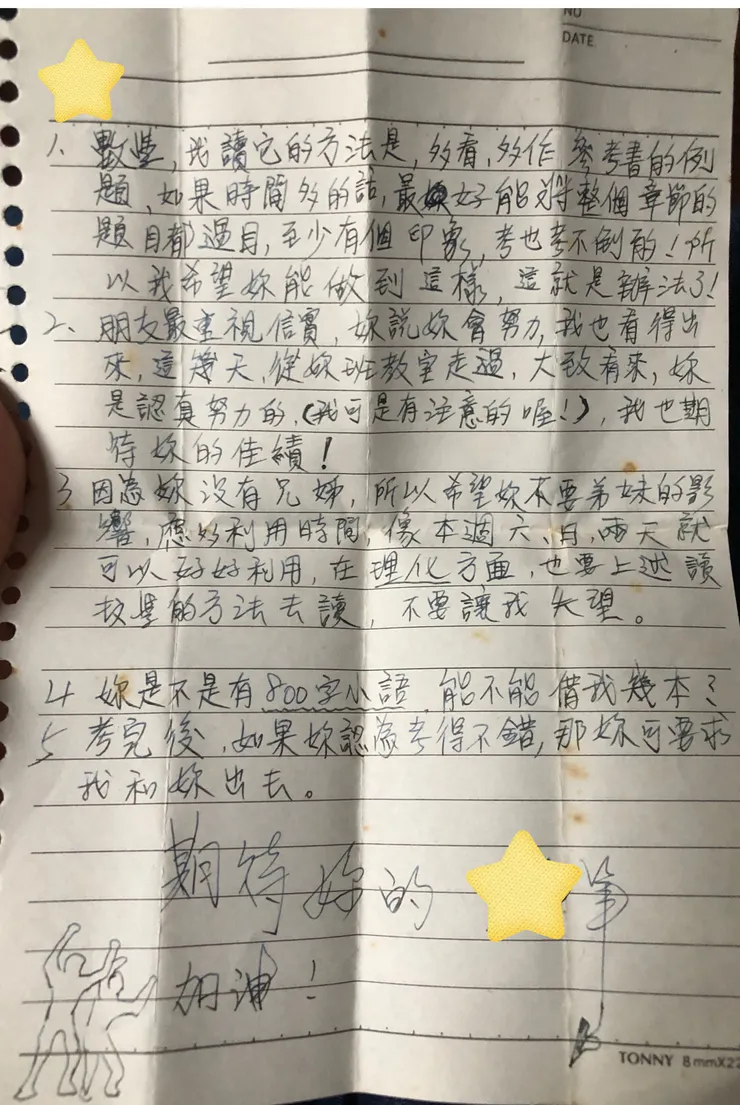 NO
DATE
1、數學,我讀它的方法是,多看,多作 參考書的例
題,如果時間多的話,最好能將整個章節的
題目都過目,至少有個 印象,考也考不倒的!所
以我希望妳能做到這樣,這就是辦法了!
2、朋友最重視信實,妳說妳會努力,我也看得出
來,這幾天,從妳班教室走過,大致看來,妳
是認真努力的,(我可是有注意的喔!),我也期
待妳的佳績!
3 因為妳沒有兄姊,所以希望妳不要弟妹的影
響,應多利用時間,像本週六、日,兩天就
可以好好利用,在理化方面,也要上述讀
數學的方法去讀,不要讓我失望。
4 妳是不是有800字小語,能不能借我幾本?
5、考完後,如果妳認為考得不錯,那妳可要求
我和妳出去。
期待妳的
筆
加油!
TONNY 8mmX22